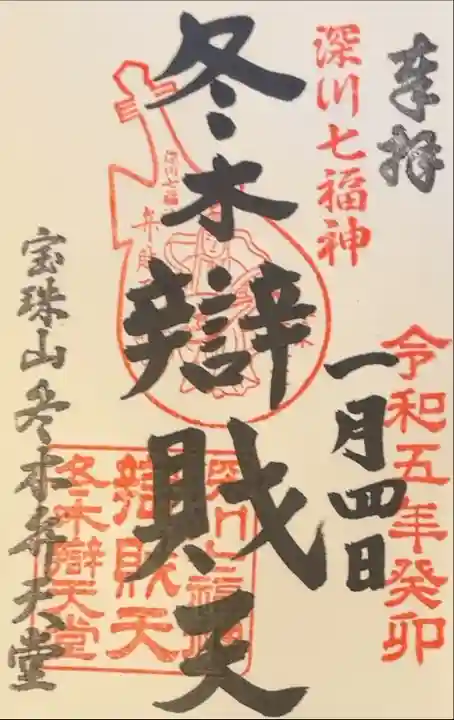 奉拝
深川七福神
令和五年癸卯
一月四日
冬木辯財天
深川七福
弁財天
深川七福神
辯財天
冬木辯天堂
宝珠山冬木弁天堂